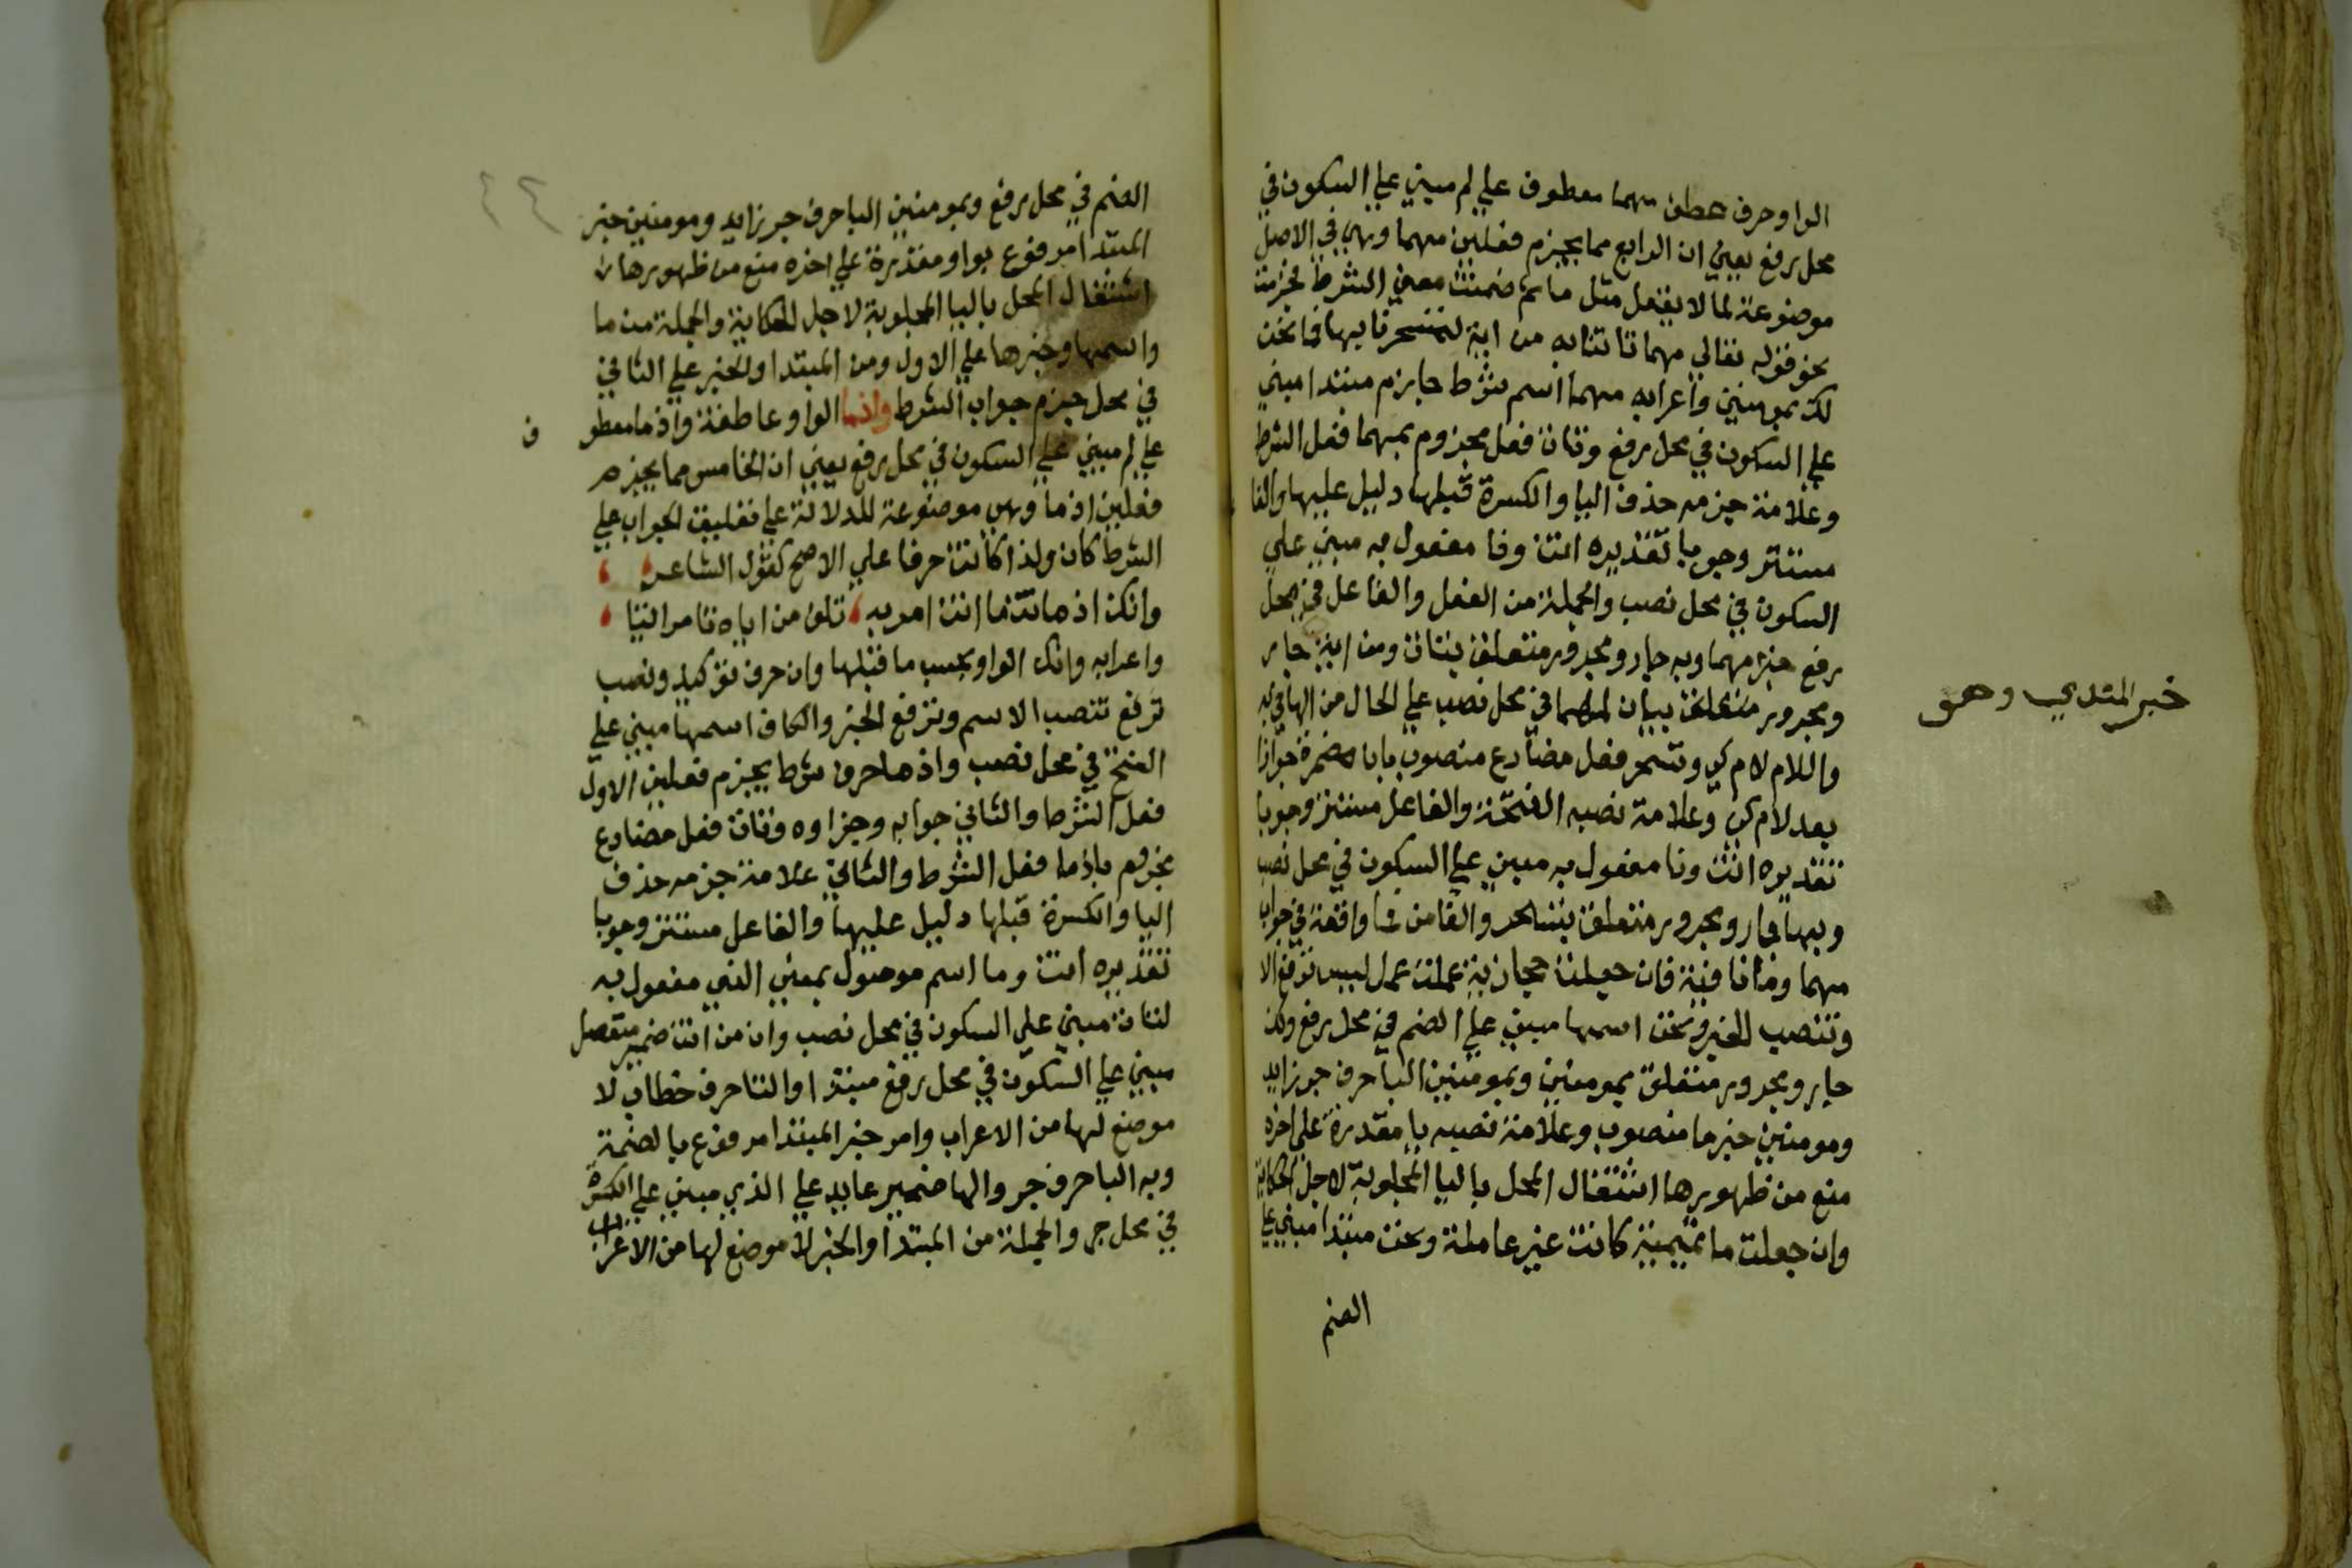 الواو حرف عطف مهما معطوف علي لم مبني علي السكون في
محل رفع يعني ان الرابع مما يجزم فعلين مهما وهي في الاصل
موضوعة لما لا يعقل مثل ما ثم ضمنت معني الشرط فجزمت
نحو قوله تعالي مهما تاتنا به من اية لتسحرنا بها فما نحن
لك بمومنين واعرابه مهما اسم شرط جازم مبتدا مبني
علي السكون في محل رفع وتات فعل مجزوم بمهما فعل الشرط
وعلامة جزمه حذف اليا والكسرة قبلها دليل عليها والفا
مستتر وجوبا تقديره انت ونا مفعول به مبني علي
السكون في محل نصب والجملة من الفعل والفاعل في محل
رفع خبر مهما وبه جار ومجرور متعلق بتات ومن اية جار
ومجرور متعلق ببيان لمهما في محل نصب علي الحال من الها في به
خبر المتدي وهو
واللام لام كي وتسحر فعل مضارع منصوب بان مضمرة جوازا
بعد لام كي وعلامة نصبه الفتحة والفاعل مستتر وجوبا
تقديره انت ونا مفعول به مبني علي السكون في محل نصب
وبها جار ومجرور متعلق بتسحر والفا من فما واقعة في جواب
مهما وما نافية فان جعلت حجازية عملت عمل ليس ترفع الا
وتنصب الخبر ونحن اسمها مبني علي الضم في محل رفع ولك
جار ومجرور متعلق بمومنين وبمومنين البا حرف جر زايد
ومومنين خبر ما منصوب وعلامة نصبه يا مقدرة علي اخره
منع من ظهورها اشتغال المحل باليا المجلوبة لاجل الحكاية
وان جعلت ما تميمية كانت غير عاملة ونحن مبتدا مبني علي
الضم
٤٤
الضم في محل رفع وبمومنين البا حرف جر زايد ومومنين خبر
المبتدا مرفوع بواو مقدرة علي اخره منع من ظهورها
اشتغال المحل باليا المجلوبة لاجل الحكاية والجملة من ما
واسمها وخبرها علي الاول ومن المبتدا والخبر علي الثاني
في محل جزم جواب الشرط واذما الواو عاطفة واذما معطو ف
علي لم مبني علي السكون في محل رفع يعني ان الخامس مما يجزم
فعلين اذما وهي موضوعة للدلالة علي تعليق الجواب علي
الشرط كان ولذا كانت حرفا علي الاصح كقول الشاعر
وانك اذما تات ما انت امر به تلف من اياه تامر اتيا
واعرابه وانك الواو بحسب ما قبلها وان حرف توكيد ونصب
ترفع تنصب الاسم وترفع الخبر والكاف اسمها مبني علي
الفتح في محل نصب واذما حرف شرط يجزم فعلين الاول
فعل الشرط والثاني جوابه وجزاوه وتات فعل مضارع
مجزوم باذما فعل الشرط والثاني علامة جزمه حذف
اليا والكسرة قبلها دليل عليها والفاعل مستتر وجوبا
تقديره انت وما اسم موصول بمعني الذي مفعول به
لتات مبني علي السكون في محل نصب وان من انت ضمير منفصل
مبني علي السكون في محل رفع مبتدا والتا حرف خطاب لا
موضع لها من الاعراب وامر خبر المبتدا مرفوع بالضمة
وبه البا حرف جر والها ضمير عايد علي الذي مبني علي الكسرة
في محل جر والجملة من المبتدا والخبر لا موضع لها من الاعراب